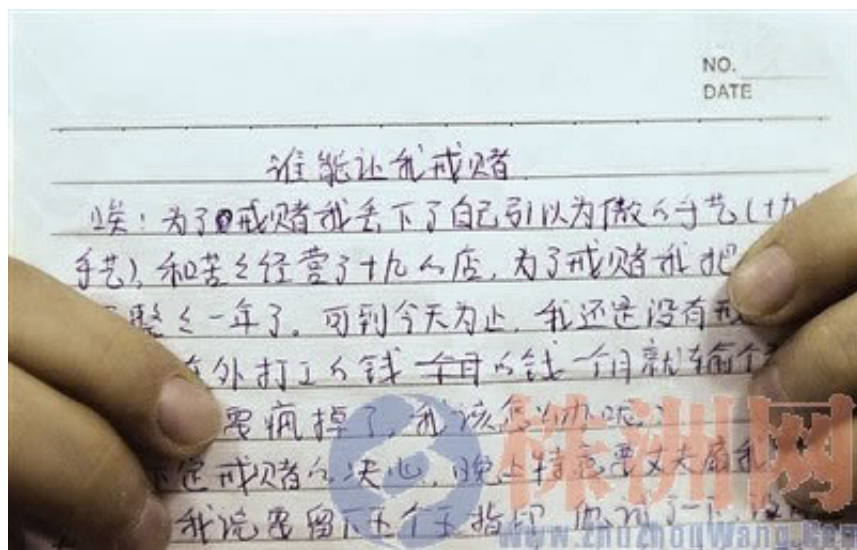 NO.
DATE
谁能让我戒赌
唉!为了戒赌我丢下了自己引以为傲的手艺(十九
手艺),和苦々经营了十九的店,为了戒赌我把
整々一年了。可到今天为止,我还是没有戒
在外打工的钱 一个月的钱一个月就输个
要疯掉了,我该怎么办呢?
定戒赌的决心,晚上特意要丈夫扇我
我说要留下五个手指印
株洲网
www.ZhuZhouWang.Com